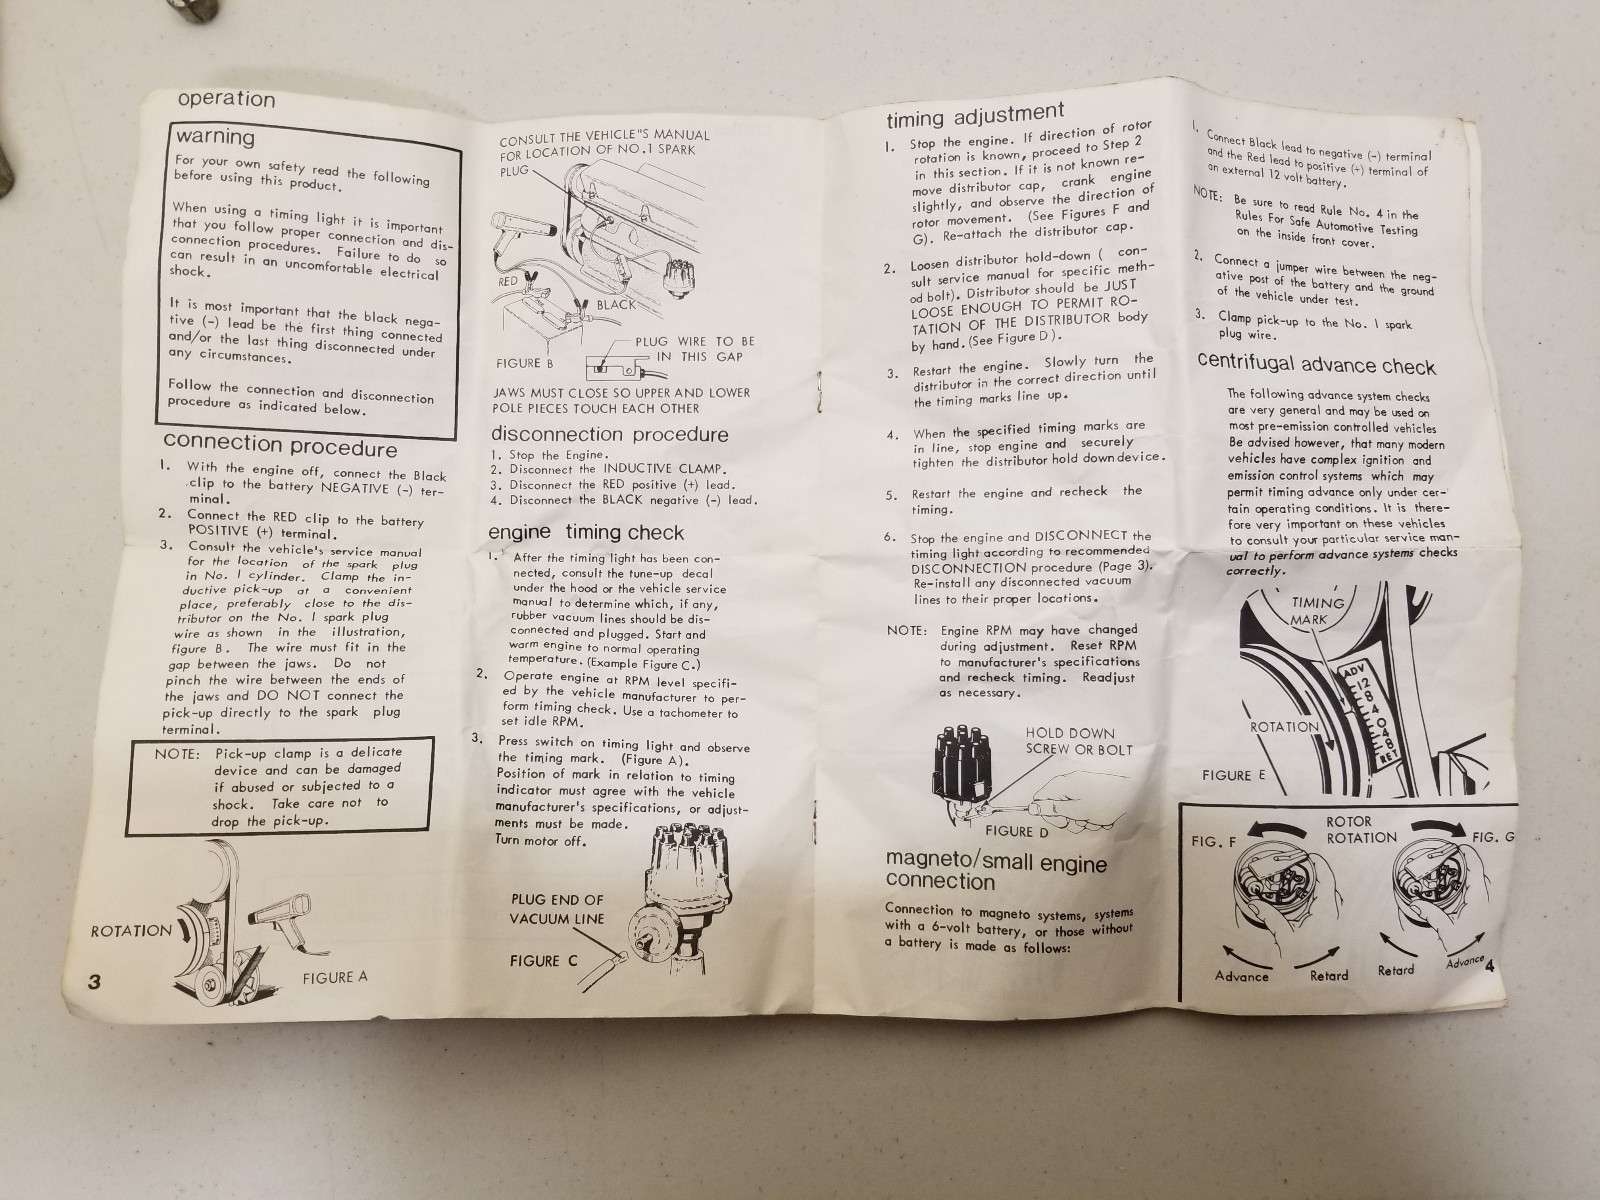 operation
warning
For your own safety read the following
before using this product.
When using a timing light it is important
that you follow proper connection and dis-
connection procedures. Failure to do so
can result in an uncomfortable electrical
shock.
It is most important that the black nega-
tive (-) lead be the first thing connected
and/or the last thing disconnected under
any circumstances.
Follow the connection and disconnection
procedure as indicated below.
connection procedure
1. With the engine off, connect the Black
clip to the battery NEGATIVE (-) ter-
minal.
2. Connect the RED clip to the battery
POSITIVE (+) terminal.
3. Consult the vehicle's service manual
for the location of the spark plug
in No. 1 cylinder. Clamp the in-
ductive pick-up at a convenient
place, preferably close to the dis-
tributor on the No. 1 spark plug
wire as shown in the illustration,
figure B. The wire must fit in the
gap between the jaws. Do not
pinch the wire between the ends of
the jaws and DO NOT connect the
pick-up directly to the spark plug
terminal.
NOTE: Pick-up clamp is a delicate
device and can be damaged
if abused or subjected to a
shock. Take care not to
drop the pick-up.
ROTATION
FIGURE A
3
CONSULT THE VEHICLE"S MANUAL
FOR LOCATION OF NO.1 SPARK
PLUG
RED
BLACK
FIGURE B
PLUG WIRE TO BE
IN THIS GAP
JAWS MUST CLOSE SO UPPER AND LOWER
POLE PIECES TOUCH EACH OTHER
disconnection procedure
1. Stop the Engine.
2. Disconnect the INDUCTIVE CLAMP.
3. Disconnect the RED positive (+) lead.
4. Disconnect the BLACK negative (-) lead.
engine timing check
1. After the timing light has been con-
nected, consult the tune-up decal
under the hood or the vehicle service
manual to determine which, if any,
rubber vacuum lines should be dis-
connected and plugged. Start and
warm engine to normal operating
temperature. (Example Figure C.)
2. Operate engine at RPM level specifi-
ed by the vehicle manufacturer to per-
form timing check. Use a tachometer to
set idle RPM.
3. Press switch on timing light and observe
the timing mark. (Figure A).
Position of mark in relation to timing
indicator must agree with the vehicle
manufacturer's specifications, or adjust-
ments must be made.
Turn motor off.
PLUG END OF
VACUUM LINE
FIGURE C
timing adjustment
1. Stop the engine. If direction of rotor
rotation is known, proceed to Step 2
in this section. If it is not known re-
move distributor cap, crank engine
slightly, and observe the direction of
rotor movement. (See Figures F and
G). Re-attach the distributor cap.
2. Loosen distributor hold-down ( con-
sult service manual for specific meth-
od bolt). Distributor should be JUST
LOOSE ENOUGH TO PERMIT RO-
TATION OF THE DISTRIBUTOR body
by hand. (See Figure D).
3. Restart the engine. Slowly turn the
distributor in the correct direction until
the timing marks line up.
4. When the specified timing marks are
in line, stop engine and securely
tighten the distributor hold down device.
5. Restart the engine and recheck the
timing.
6. Stop the engine and DISCONNECT the
timing light according to recommended
DISCONNECTION procedure (Page 3).
Re-install any disconnected vacuum
lines to their proper locations.
NOTE: Engine RPM may have changed
during adjustment. Reset RPM
to manufacturer's specifications
and recheck timing. Readjust
as necessary.
HOLD DOWN
SCREW OR BOLT
FIGURE D
magneto/small engine
connection
Connection to magneto systems, systems
with a 6-volt battery, or those without
a battery is made as follows:
1. Connect Black lead to negative (-) terminal
and the Red lead to positive (+) terminal of
an external 12 volt battery.
NOTE: Be sure to read Rule No. 4 in the
Rules For Safe Automotive Testing
on the inside front cover.
2. Connect a jumper wire between the neg-
ative post of the battery and the ground
of the vehicle under test.
3. Clamp pick-up to the No. 1 spark
plug wire.
centrifugal advance check
The following advance system checks
are very general and may be used on
most pre-emission controlled vehicles
Be advised however, that many modern
vehicles have complex ignition and
emission control systems which may
permit timing advance only under cer-
tain operating conditions. It is there-
fore very important on these vehicles
to consult your particular service man-
ual to perform advance systems checks
correctly.
TIMING
MARK
ADV
12
8
4
0
4
8
RET
ROTATION
FIGURE E
FIG. F
ROTOR
ROTATION
FIG. G
Advance
Retard
Retard
Advance
4